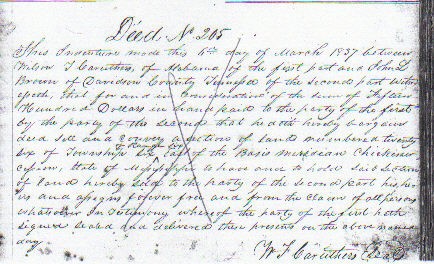 Deed No 205
This Indenture made this 4th day of March 1837 between
Wilson T Caruthers, of Alabama of the first part and John L
Brown of Davidson County of the second part witn
eseth, that for and in Consideration of the sum of Fifteen
Hundred Dollars in hand paid to the party of the first
by the party of the second that he hath hereby bargained
deed sell and convey a section of lands numbered twenty
six of Township six East of the Basis meridian Chickasaw
Cession, State of Mississippi to have and to hold said Section
of land hereby sold to the party of the second part his he
irs and assigns forever free and from the claim of all persons
whatsoever In testimony whereof the party of the first hath
signed sealed and delivered these presents on the above named
day
W T Caruthers (Seal)